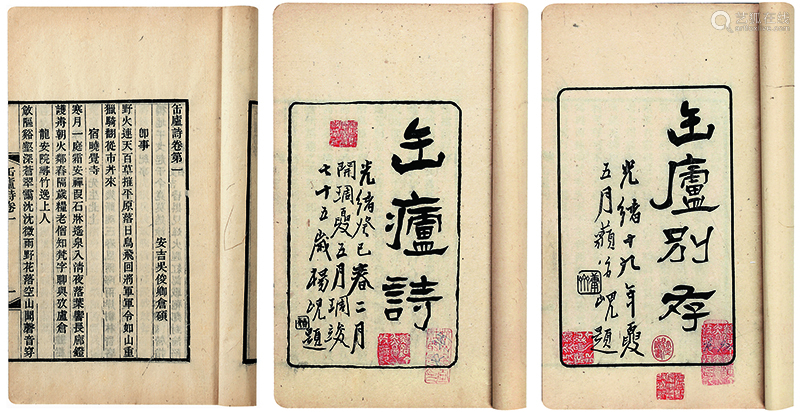 缶廬詩卷第一
安吉吳俊卿倉碩
卽事
野火連天百草摧平原落日鳥飛回將軍軍令如山重
獵騎翻從市井來
宿曉覺寺
寒月一庭霜安禪叚石牀遙泉入清夜落葉響長廊鐙
護黹朝火鄰春隔歲糧老僧知梵字聊與攷盧倉
龍安院尋竹逸上人
敧區谿壑深蒼翠霭沈沈微雨野花落空山閣磬音穿
缶廬詩卷一
缶廬詩
光緒癸巳春二月
開琱夏五月琱竣
七十五歲楊峴題
缶廬別存
光緒十九年夏
五月藐翁峴題